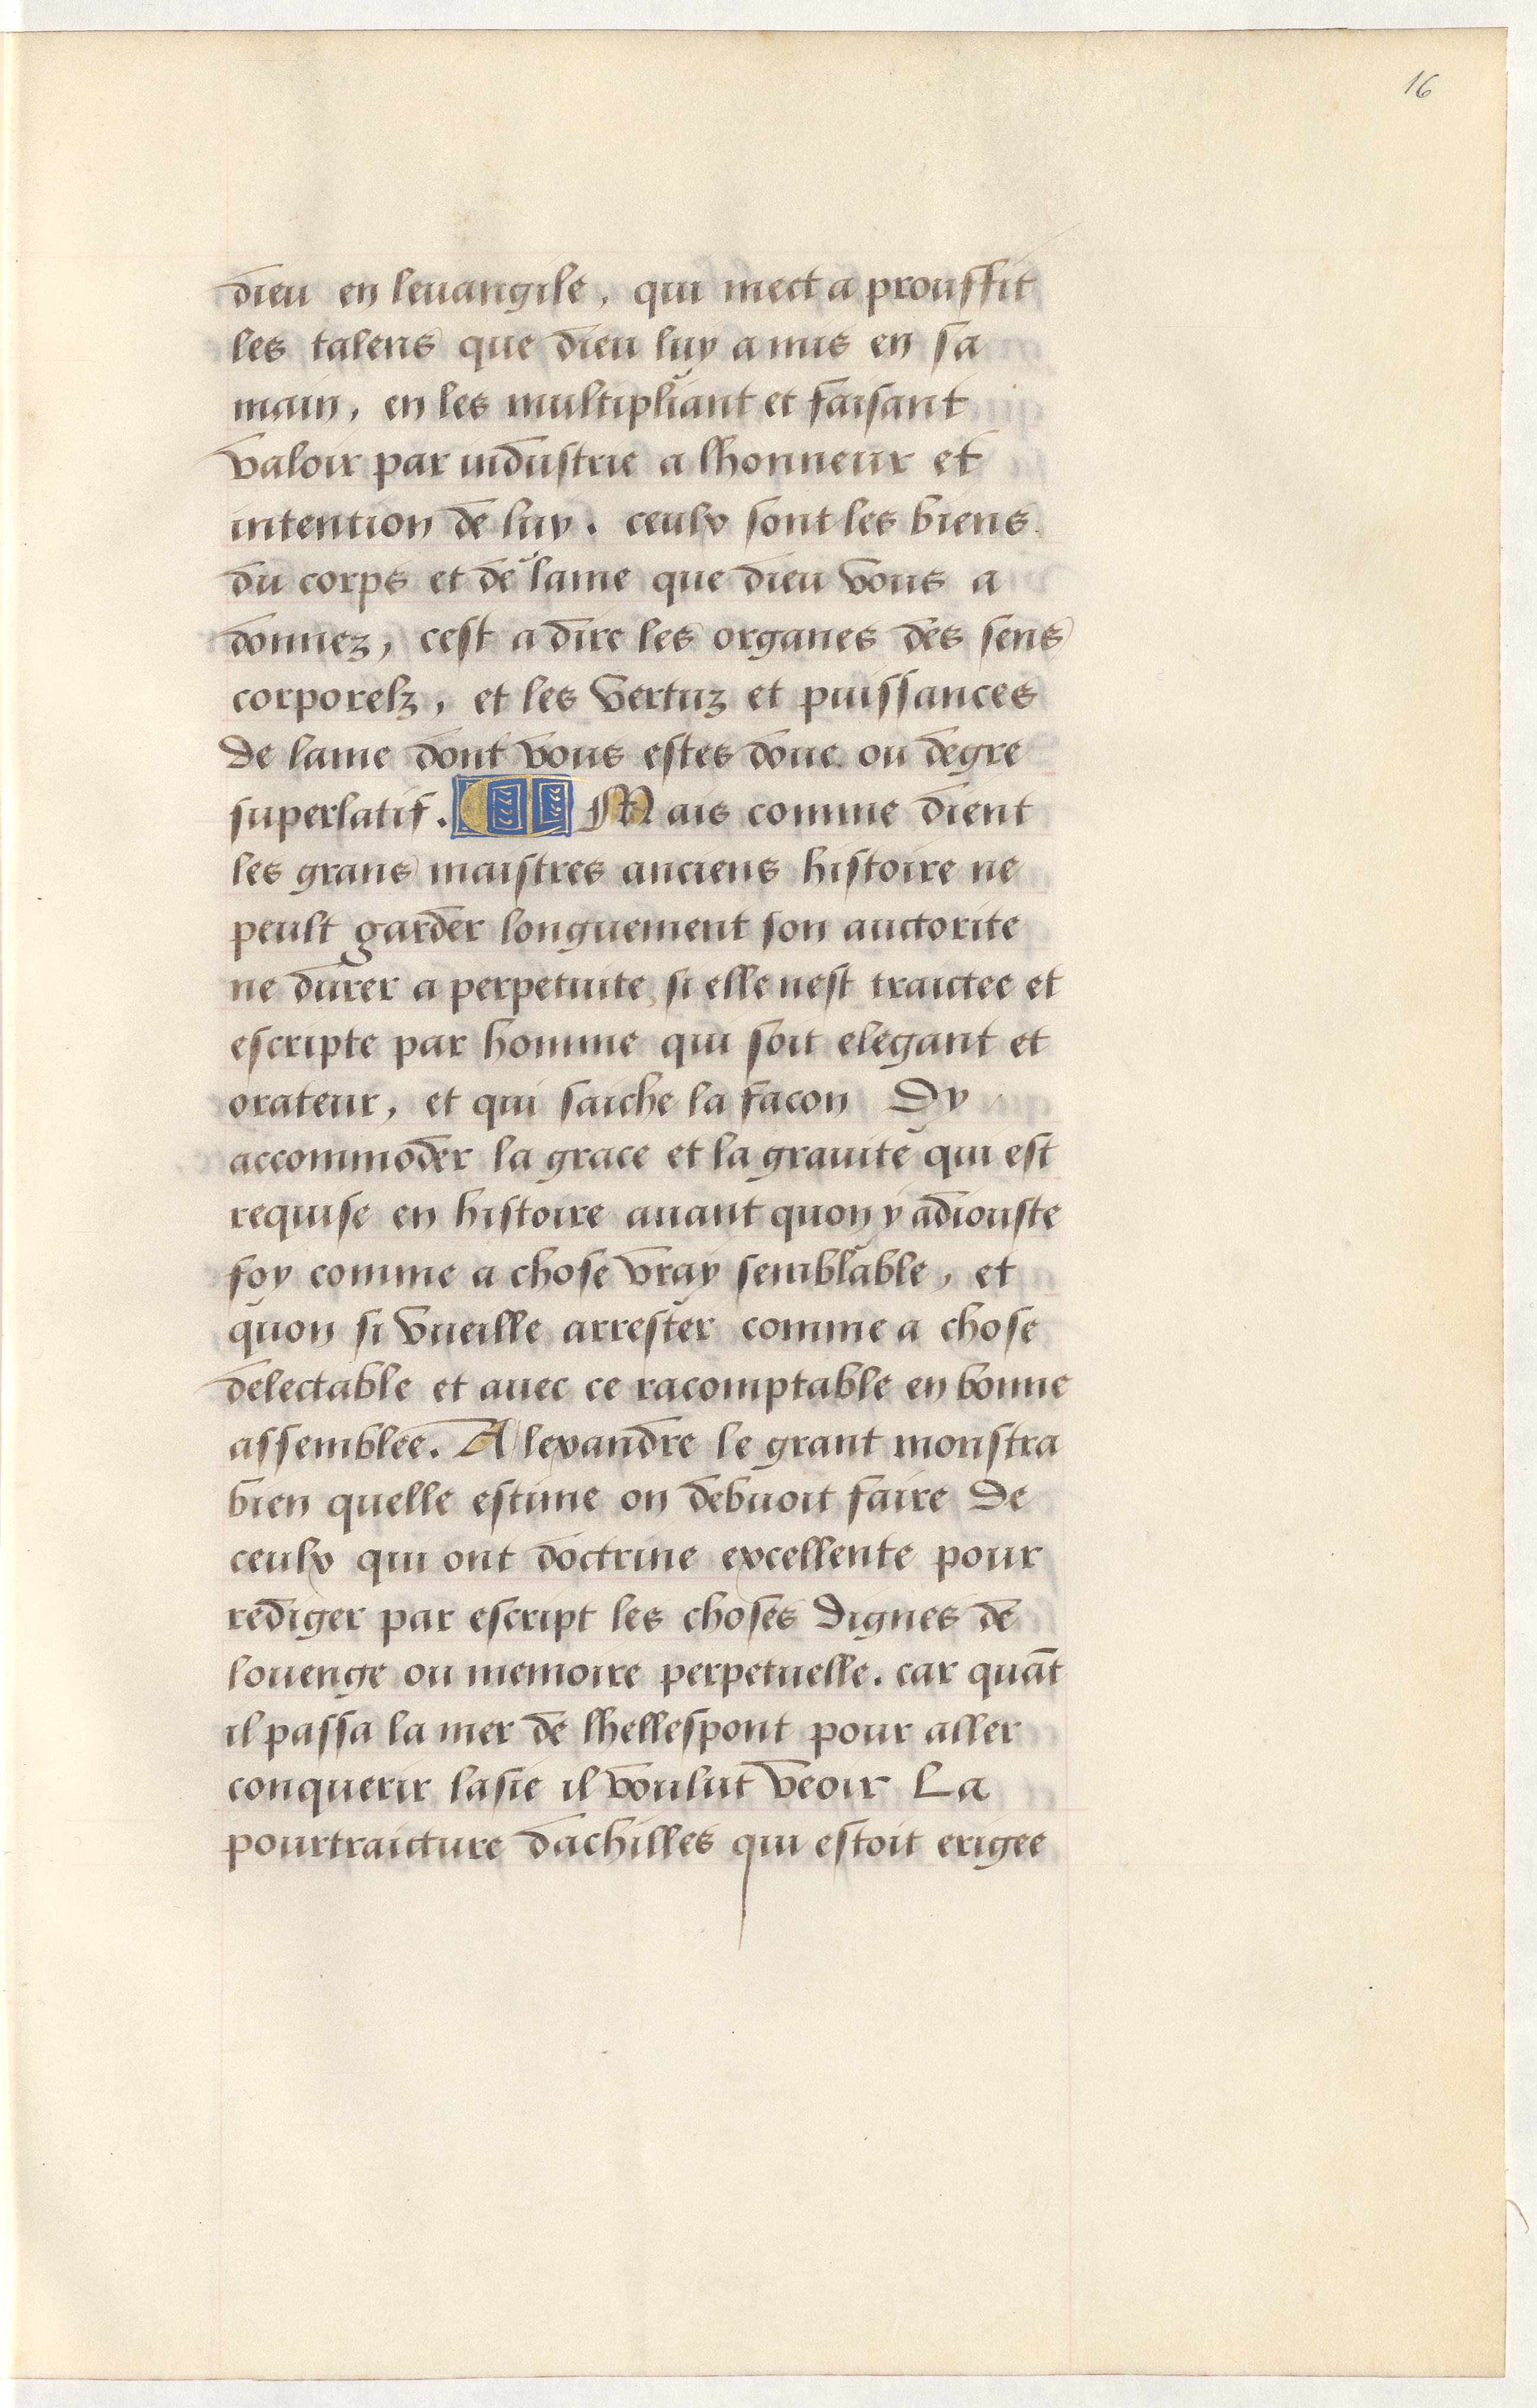 16
dieu en leuangile, qui mect a prouffit
les talens que dieu luy a mis en sa
main, en les multipliant et faisant
valoir par industrie a lhonneur et
intention de luy. ceulx sont les biens
du corps et de lame que dieu vous a
donnez, cest a dire les organes des sens
corporelz, et les vertuz et puissances
de lame dont vous estes doue ou degre
superlatif. Mais comme dient
les grans maistres anciens histoire ne
peult garder longuement son auctorite
ne durer a perpetuite, si elle nest traictee et
escripte par homme qui soit elegant et
orateur, et qui saiche la facon Dy
accommoder la grace et la grauite qui est
requise en histoire auant quon y adiouste
foy comme a chose vray semblable, et
quon si vueille arrester comme a chose
delectable et auec ce racomptable en bonne
assemblee. Alexandre le grant monstra
bien quelle estime on debuoit faire De
ceulx qui ont doctrine excellente pour
rediger par escript les choses dignes de
louenge ou memoire perpetuelle. car quāt
il passa la mer de lhellespont pour aller
conquerir lasie il voulut veoir La
pourtraicture dachilles qui estoit erigee